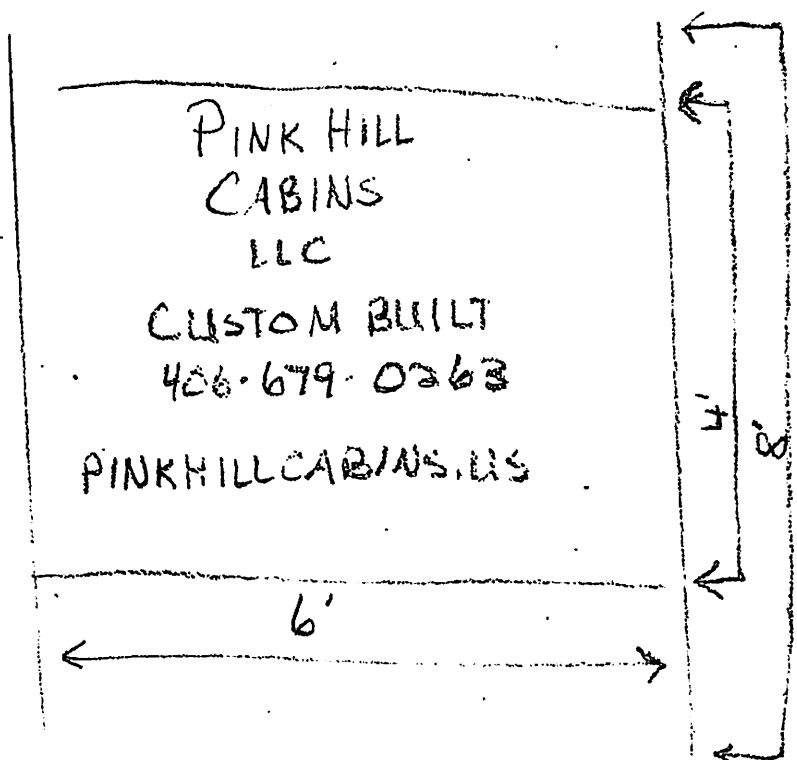 PINK HILL
CABINS
LLC
CUSTOM BUILT
406·679·0263
PINKHILLCABINS.US
4'
8'
6'